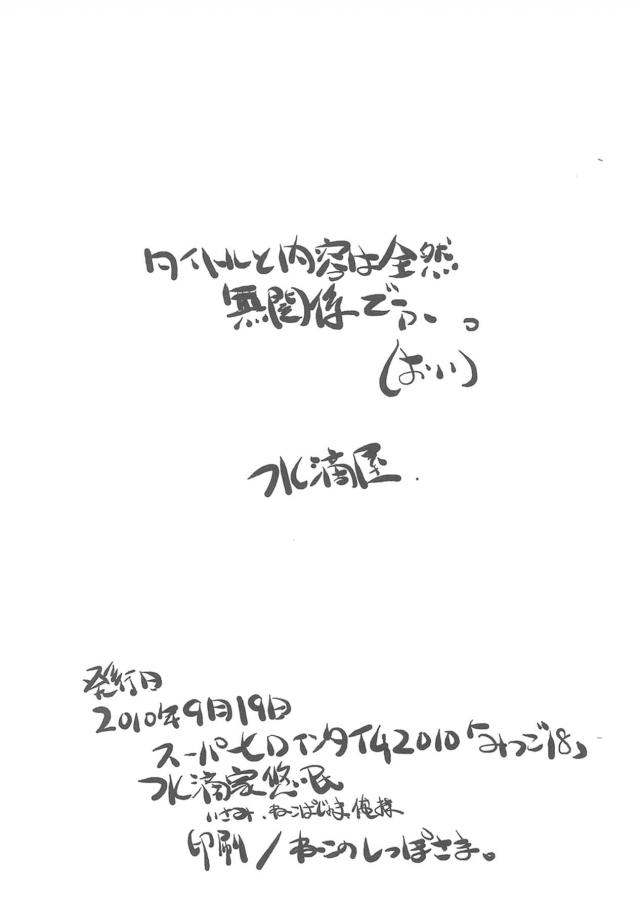 タイトルと内容は全然
無関係です。
(おいい)
水滴屋.
発行日
2010年9月19日
スーパーヒロインタイム2010「みつご18」
水滴家悠民
いさみ、ねこぱじゃま、俺様
印刷/ねこのしっぽさま。